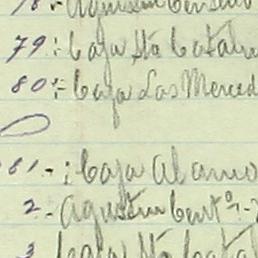 79:- Caja Sta Catalin
80:- Caja Las Merced
81.-: Caja Alamo
2.- Agustin Cent
3 Caja Sta Catal